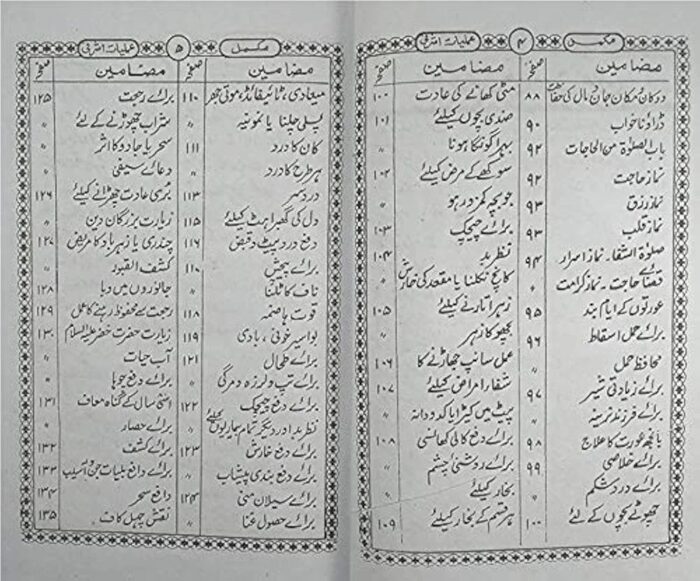 مکمل ۴ عملیات اشرفی
مضامین صفحہ
دوکان مکان جان و مال کی حفاظت ۸۸
ڈراؤنا خواب ۹۰
باب الصلوٰۃ من الحاجات ۹۲
نماز حاجت ۹۲
نماز رزق ۹۳
نماز قلب ۹۳
صلوٰۃ الشفاء۔ نماز اسرار ۹۴
قضائے حاجت۔ نماز کرامت 〃
عورتوں کے ایام بند ۹۵
برائے حمل اسقاط ۹۶
محافظ حمل 〃
برائے زیادتی شیر ۹۷
برائے فرزند نرینہ 〃
بانجھ عورت کا علاج ۹۸
برائے خلاصی ۹۹
برائے درد شکم 〃
چھوٹے بچوں کے لئے ۱۰۰
مضامین صفحہ
مٹی کھانے کی عادت ۱۰۰
ضدی بچوں کیلئے ۱۰۱
بہرا گونگا ہونا 〃
سوکھے کے مرض کیلئے ۱۰۲
جو بچہ کمزور ہو 〃
برائے چیچک ۱۰۳
نظر بد ۱۰۴
کانچ نکلنا یا مقعد کی خارش 〃
زہر اتارنے کیلئے ۱۰۵
بچھو کا زہر 〃
عمل سانپ جھاڑنے کا ۱۰۶
شفاء امراض کیلئے ۱۰۷
پیٹ میں کیڑا یا کدودانہ 〃
برائے دفع کالی کھانسی ۱۰۸
برائے روشنی چشم 〃
بخار کیلئے 〃
ہر قسم کے بخار کیلئے ۱۰۹
مکمل ۵ عملیات اشرفی
مضامین صفحہ
میعادی، ٹائیفائڈ، موتی جھر ۱۱۰
پسلی چلنا یا نمونیہ 〃
کان کا درد ۱۱۱
ہر طرح کا درد 〃
درد سر ۱۱۳
دل کی گھبراہٹ کیلئے ۱۱۵
دفع درد پیٹ و قبض ۱۱۶
برائے پیچش
ناف کا ٹلنا 〃
قوت ہاضمہ ۱۱۸
بواسیر خونی، بادی ۱۱۹
برائے طحال ۱۲۱
برائے تپ و لرزہ و مرگی 〃
برائے دفع چیچک ۱۲۲
نظر بد اور دیگر تمام بیماریوں کیلئے 〃
برائے دفع خارش ۱۲۳
برائے دفع بندی پیشاب 〃
برائے سیلان منی ۱۲۴
برائے حصول غنا 〃
مضامین صفحہ
برائے رجعت ۱۲۵
شراب چھوڑنے کے لئے 〃
سحر یا جادو کا اثر 〃
دعائے سیفی 〃
بُری عادت چھڑانے کیلئے ۱۲۶
زیارت بزرگان دین 〃
چندری یا زہر باد کا مریض ۱۲۷
کشف القبور 〃
جانوروں میں وبا ۱۲۸
رجعت سے محفوظ رہنے کا عمل ۱۲۹
زیارت حضرت خضر علیہ السلام ۱۳۰
آب حیات 〃
برائے دفع چوہا 〃
اسّی سال کے گناہ معاف ۱۳۱
برائے حصار 〃
برائے کشف ۱۳۲
برائے دافع بلیات جن و آسیب ۱۳۳
دافع سحر ۱۳۴
نقش چہل کاف ۱۳۵